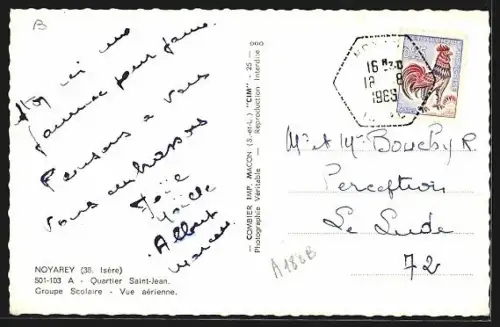 B
journée pour faire
Pensons à vous
vous embrassons
Joëlle
Albert
NOYAREY (38. Isère)
501-103 A - Quartier Saint-Jean.
Groupe Scolaire - Vue aérienne.
— COMBIER IMP. MACON (S.-et-L.) "CIM" - 25 - 000
Photographie Véritable — Reproduction Interdite
16 H
18 - 8
1965
Mr et Me Bouchy R.
Perception
Le Lude
72
A188B